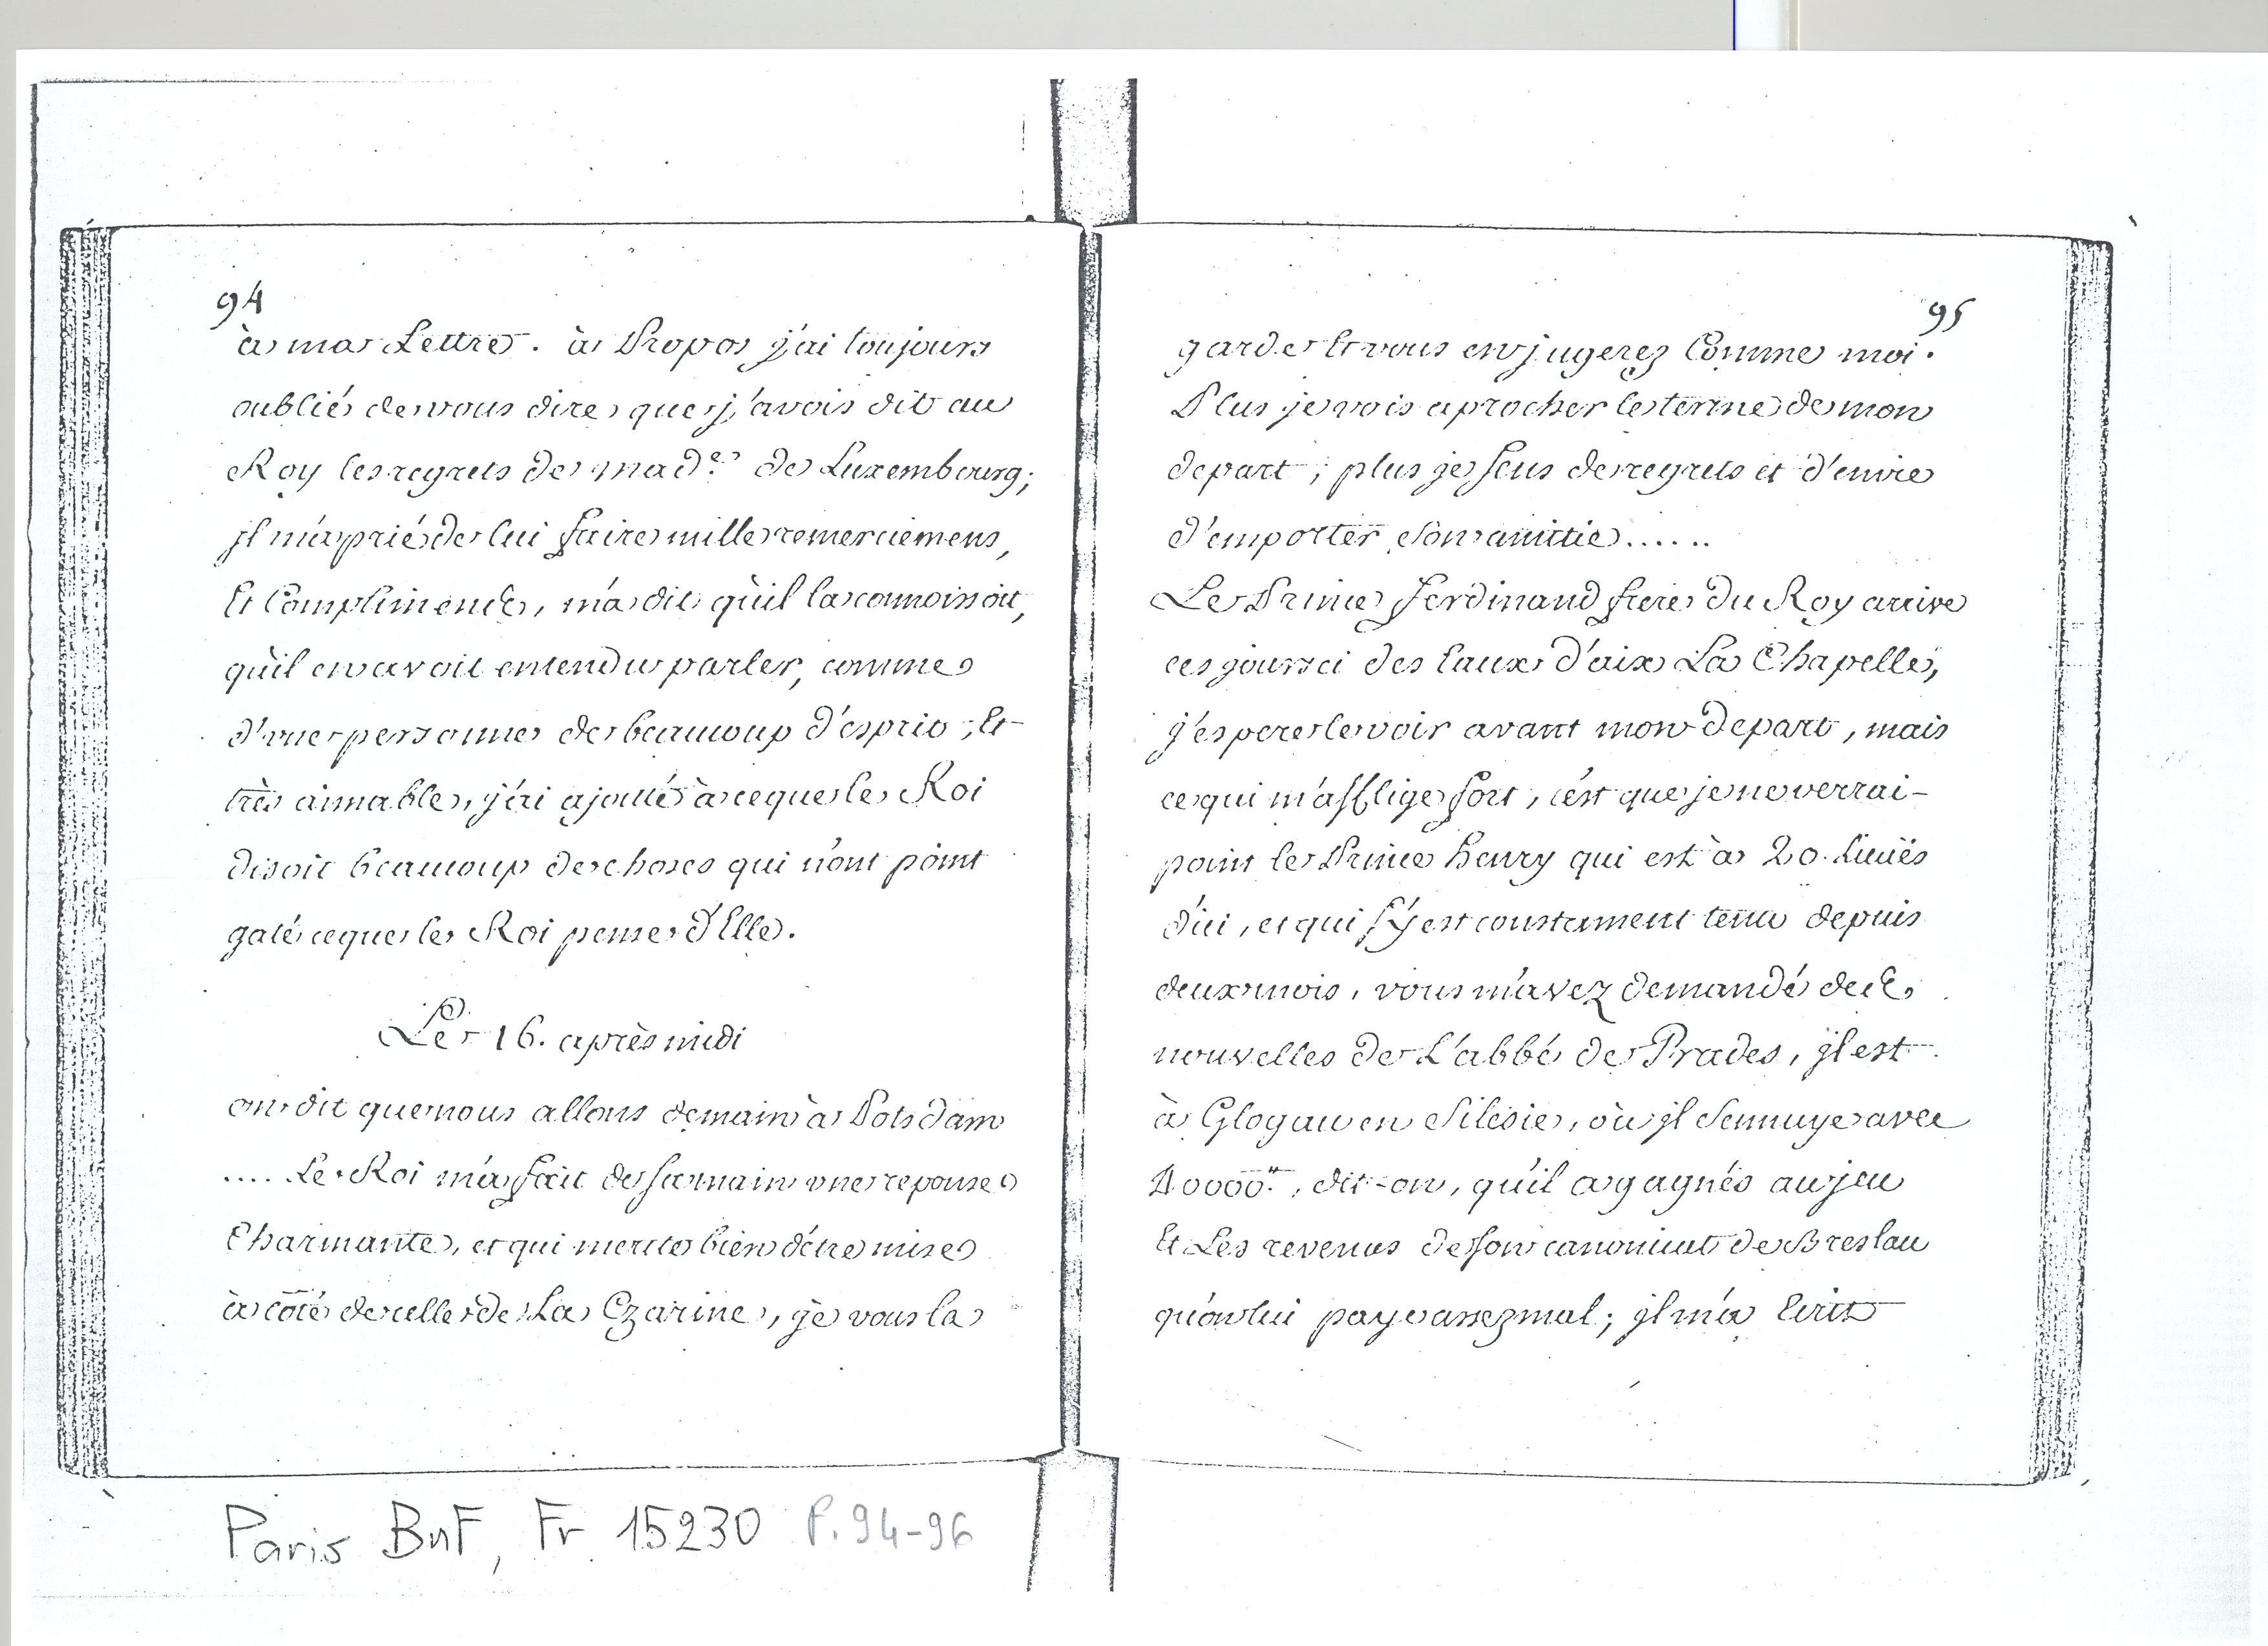 94
à ma Lettre. à Propos j'ai toujours
oublié de vous dire que j'avois dit au
Roy les regrets de mad.e de Luxembourg;
jl m'a prié de lui faire mille remerciemens,
Et Complimens, m'a dit qu'il la connoissoit,
qu'il en avoit entendu parler, comme
d'une personne de beaucoup d'esprit, Et
très aimable, j'ai ajouté à ce que le Roi
disoit beaucoup de choses qui n'ont point
gaté ce que le Roi pense d'Elle.
Le 16. après midi
on dit que nous allons demain à Potsdam
.... Le Roi m'a fait de sa main une reponse
Charmante, et qui merite bien d'être mise
à côté de celle de La Czarine, je vous la
95
garde Et vous en jugerez Comme moi.
Plus je vois aprocher le terme de mon
depart; plus je sens de regrets et d'envie
d'emporter son amitié......
Le Prince Ferdinand frere du Roy arrive
ces jours ci des Eaux d'aix La Chapelle,
j'espere le voir avant mon depart, mais
ce qui m'afflige fort, c'est que je ne verrai-
point le Prince henry qui est à 20. Lieuës
d'ici, et qui s'y est constament tenu depuis
deux mois, vous m'avez demandé des
nouvelles de L'abbé de Prades, jl est
à Glogau en Silesie, où jl s'ennuye avec
40000.#, dit-on, qu'il a gagnés au jeu
Et Les revenus de son canonicat de Breslau
qu'on lui paye assez mal; jl m'a Ecrit
Paris BnF, Fr 15230 P. 94-96